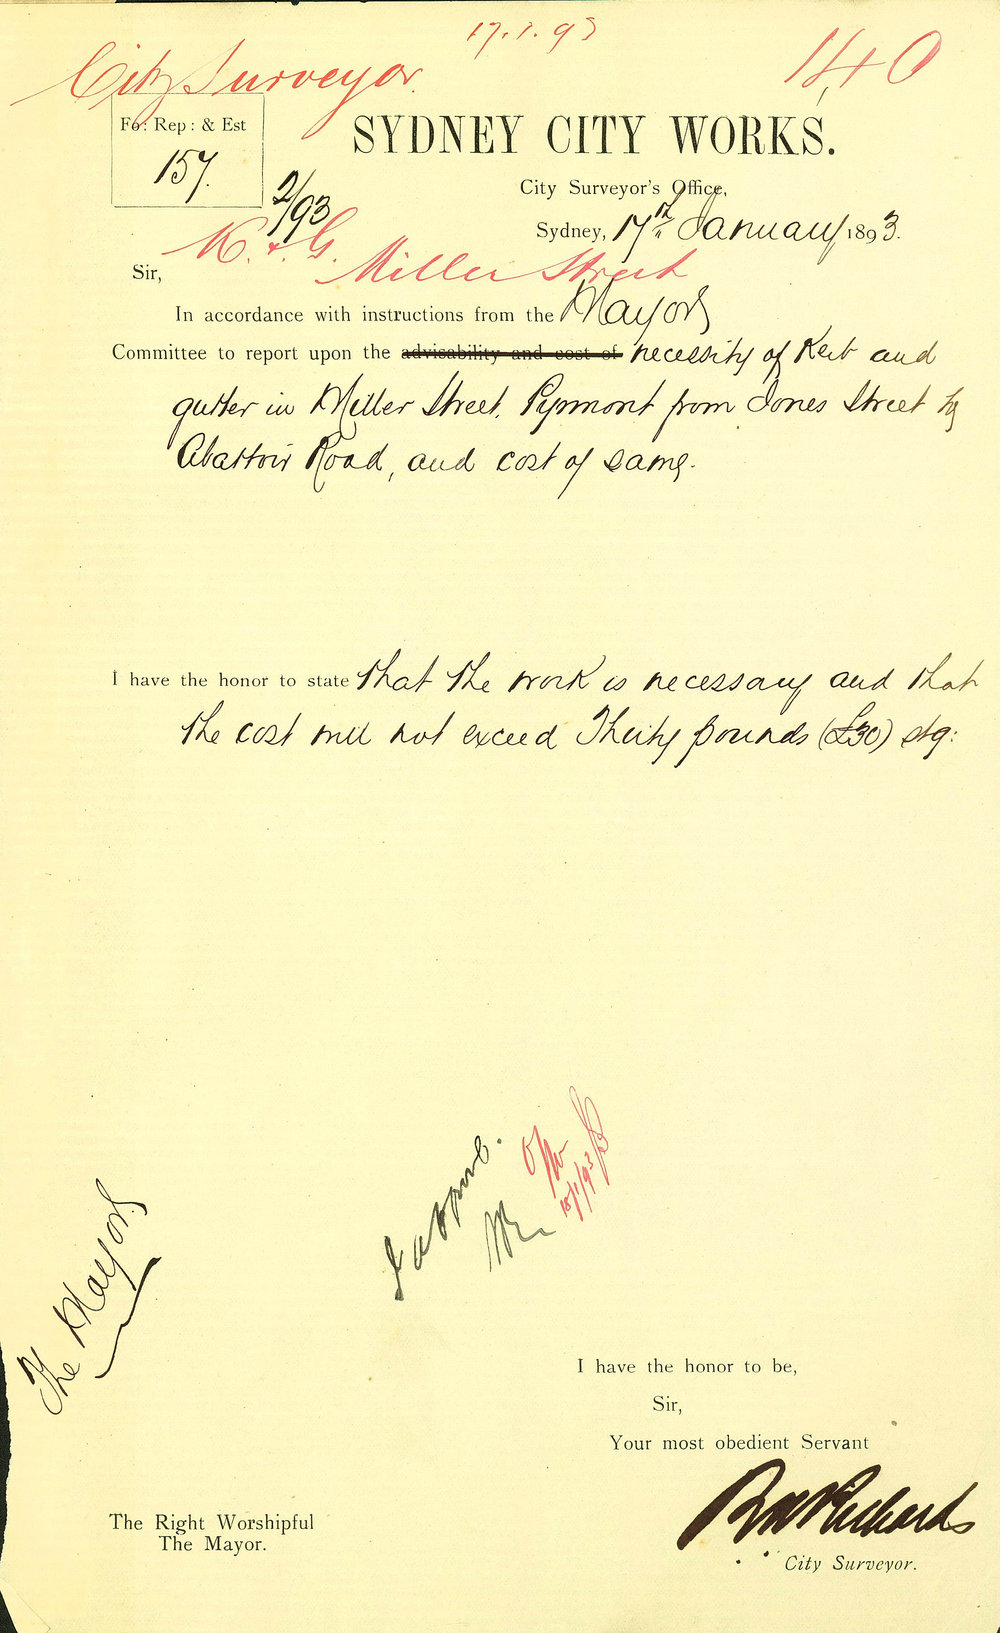 17.1.93
City Surveyor.
140
Fo: Rep: & Est
157.
2/93
SYDNEY CITY WORKS.
City Surveyor's Office,
Sydney, 17th January 1893.
K. & G.
Miller Street
Sir,
In accordance with instructions from the Mayor
Committee to report upon the advisability and cost of necessity of Kerb and
gutter in Miller Street, Pyrmont from Jones Street to
Abattoir Road, and cost of same.
I have the honor to state that the work is necessary and that
the cost will not exceed Thirty pounds (£30) stg:
I approve.
18/1/93
The Mayor
I have the honor to be,
Sir,
Your most obedient Servant
Richards
City Surveyor.
The Right Worshipful
The Mayor.